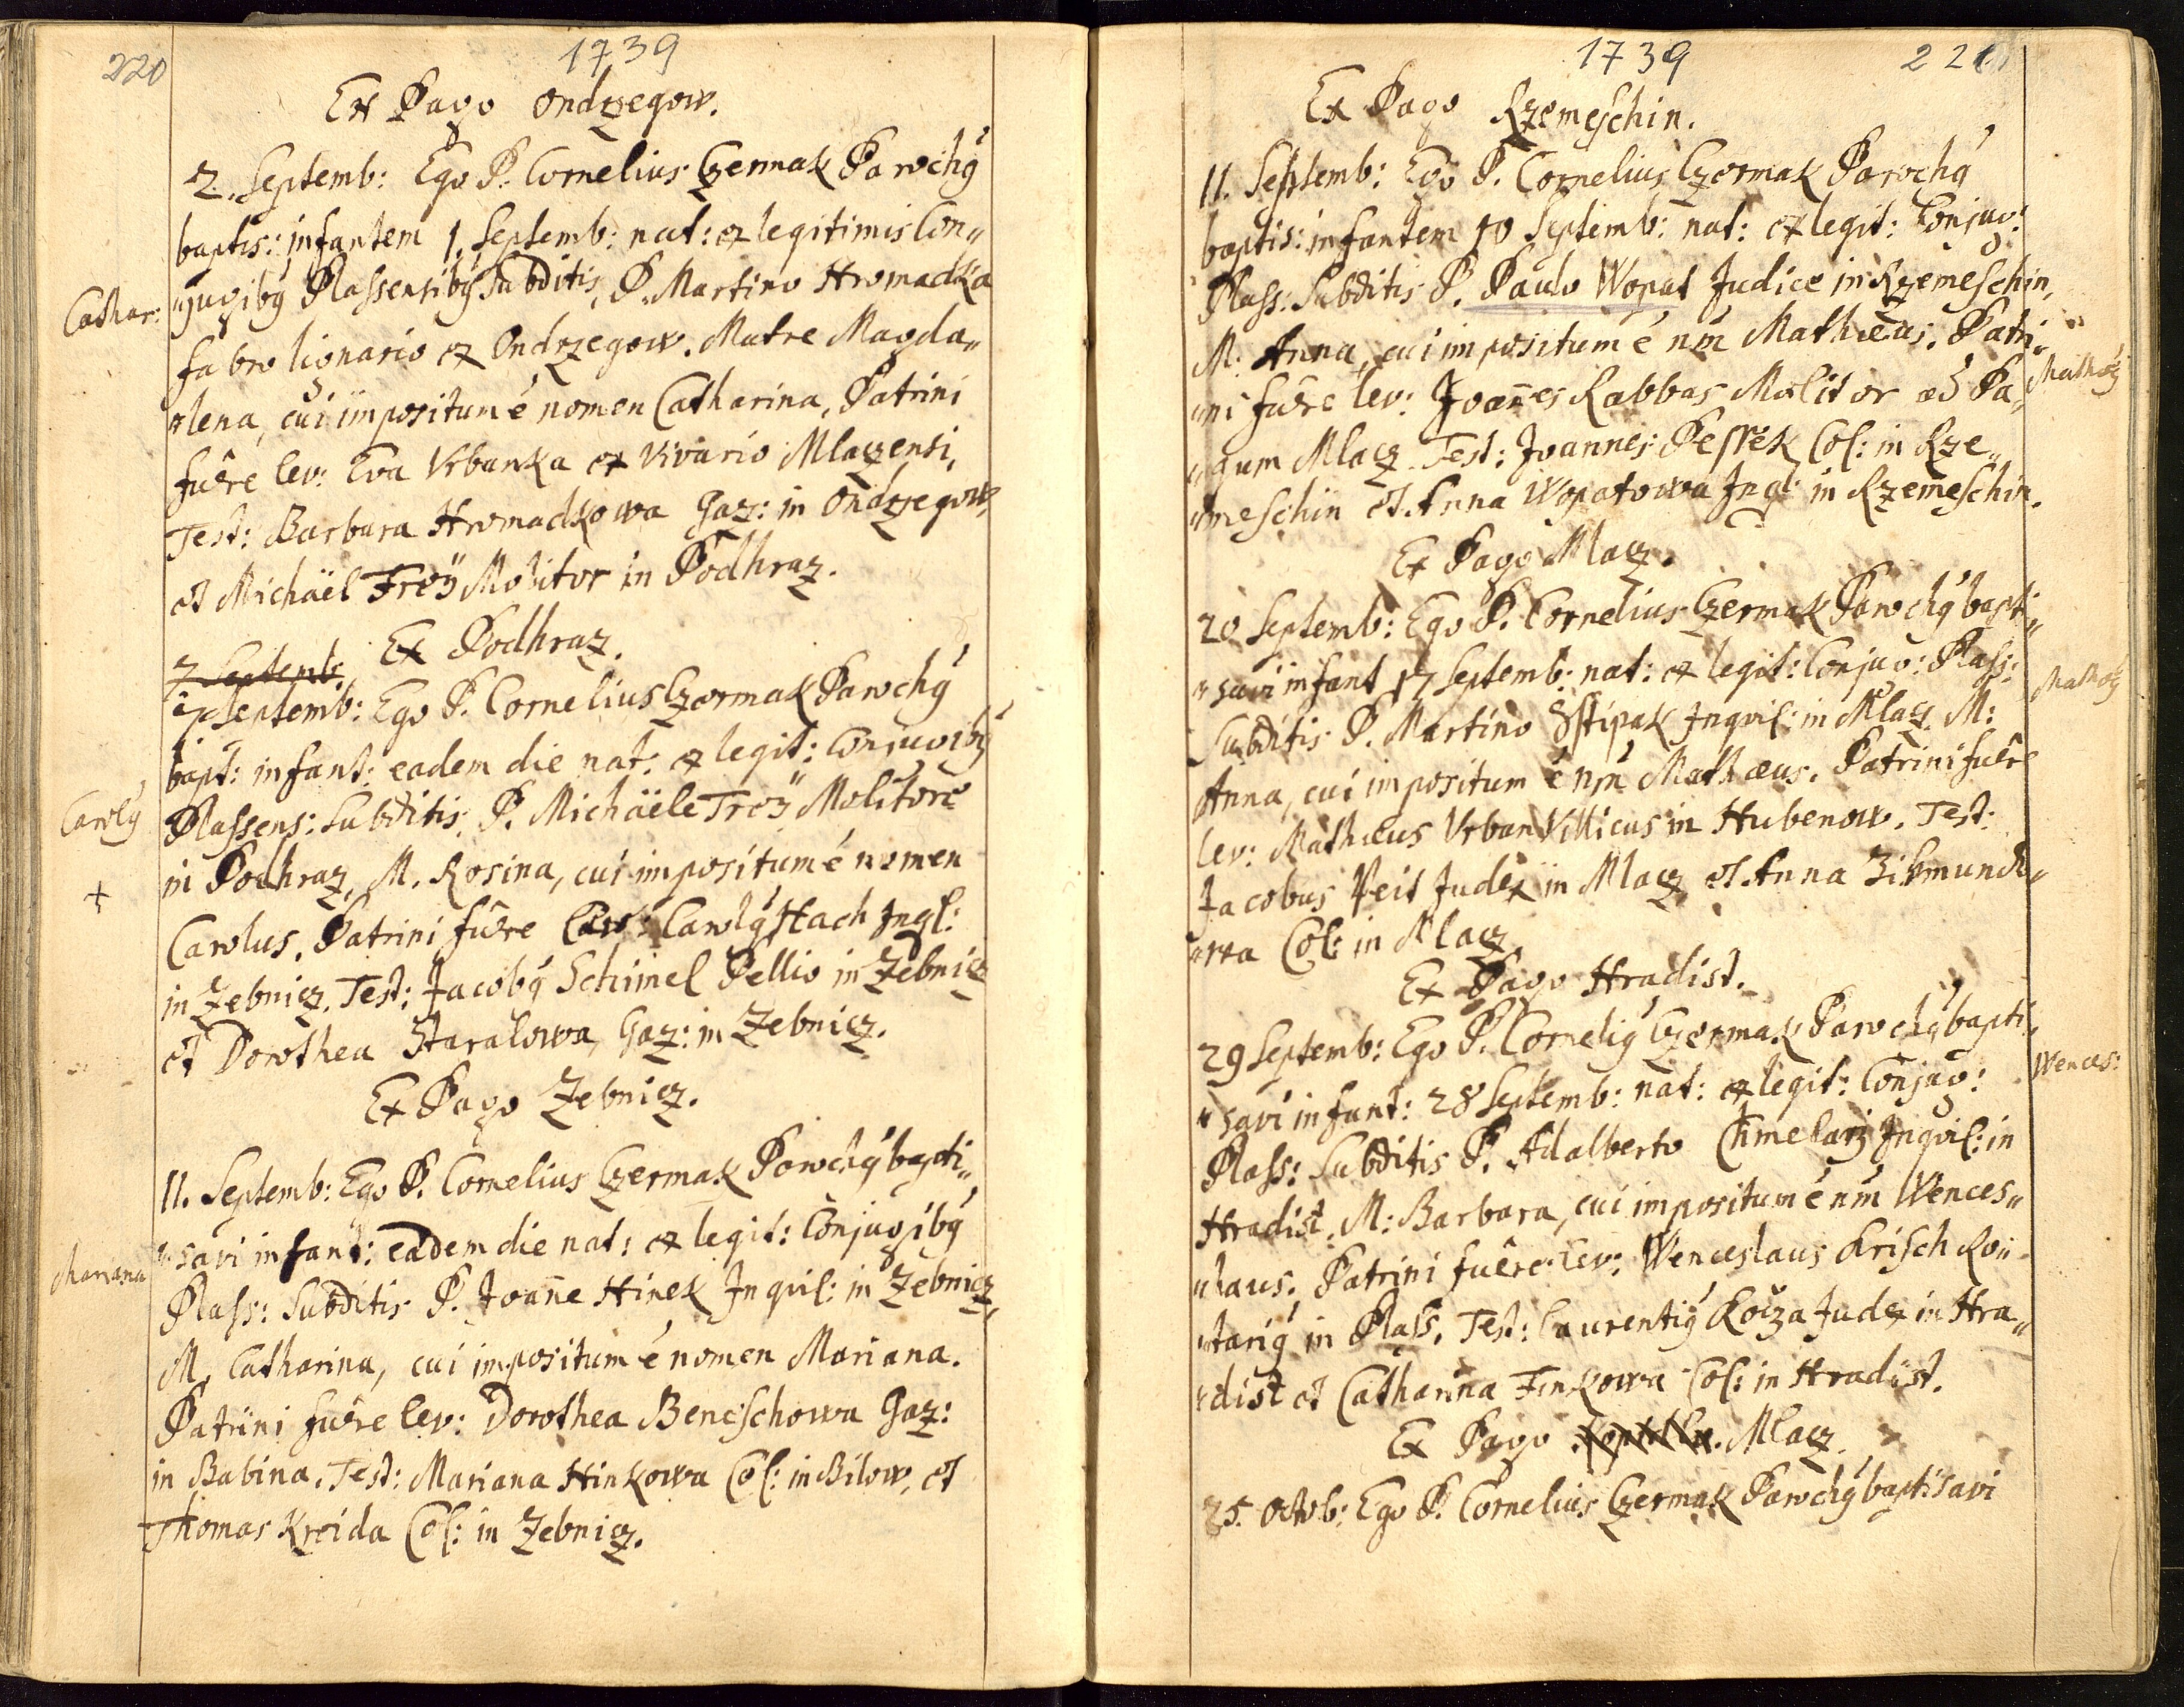 220
1739
Ex Pago Ondrzegow.
2. Septemb: Ego P. Cornelius Czermak Parochg
baptis: infantem 1. Septemb: nat: ex legitimis Con„
Cathar:
„jugibg Plassensibg Subditis, P. Martino Hromadka
fabro lignario ex Ondrzegow. Matre Magda„
„lena, cui impositum é nomen Catharina, Patrini
fuêre lev: Eva Vrbanka ex Vivario Mlaczensi,
Test: Barbara Hromadkowa Gaz: in Ondrzegow,
et Michäel Treÿ Molitor in Podhraz.
7 Septemb: Ex Podhraz.
Septemb: Ego P. Cornelius Czermak Parochg
bapt: infant: eadem die nat: ex legit: Conjugibg
Carolg
Plassens: Subditis, P. Michäele Treÿ Molitore
+
in Podhraz, M. Rosina, cui impositum é nomen
Carolus. Patrini fuêre Carolg Hach Inql:
in Zebnicz. Test: Jacobg Schimel Pellio in Zebnicz
et Dorothea Haralowa, Gaz: in Zebnicz.
Ex Pago Zebnicz.
11. Septemb: Ego P. Cornelius Czermak Parochg bapti„
Mariana
„savi infant: eadem die nat: ex legit: Conjugibg
Plass: Subditis P. Joan̄e Hinek Inquil: in Zebnicz,
M. Catharina, cui impositum é nomen Mariana.
Patrini fuêre lev: Dorothea Beneschowa Gaz:
in Babina. Test: Mariana Hinkowa Col: in Bilow, et
Thomas Kreida Col: in Zebnicz.
1739
221
Ex Pago Rzemeschin.
11. Septemb: Ego P. Cornelius Czermak Parochg
baptis: infantem 10 Septemb: nat: ex legit: Conjug:
Plass: Subditis P. Paulo Wopat Judice in Rzemeschin,
M: Anna, cui impositum é nm̄ Mathæus. Patri„
Mathæg
„ni fuêre lev: Joan̄es Rabbas Molitor ad Pa„
„gum Mlacz. Test: Joannes Pessek Col: in Rze„
„meschin et Anna Wopatowa Inql: in Rzemeschin.
Ex Pago Mlacz.
20 Septemb: Ego P. Cornelius Czermak Parochg bapti„
„savi infant 17 Septemb: nat: ex legit: Conjug: Plass:
Mathæg
Subditis P. Martino Sstipak Inquil: in Mlacz. M:
Anna, cui impositum é nm̄ Mathæus. Patrini fuêre
lev: Mathæus Vrban Villicus in Hubenow. Test:
Jacobus Veit Judex in Mlacz et Anna Zikmundo„
„wa Col: in Mlacz.
Ex Pago Hradist.
29 Septemb: Ego P. Cornelig Czermak Parochg bapti„
Wences:
„savi infant: 28 Septemb: nat: ex legit: Conjug:
Plass: Subditis P. Adalberto Chmelarz Inquil: in
Hradist, M: Barbara, cui impositum é nm̄ Wences„
„laus. Patrini fuêre lev: Wenceslaus Krisch Ro„
„tarig in Plass. Test: Laurentig Kocza Judex in Hra„
„dist et Catharina Finkowa Col: in Hradist.
Ex Pago Mlacz.
25. Octob: Ego P. Cornelius Czermak Parochg baptisavi